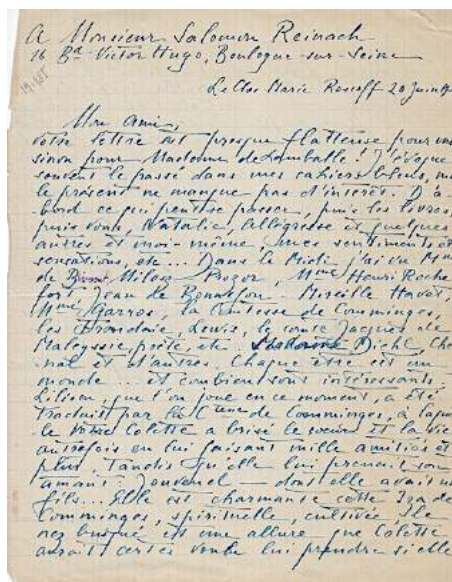 A Monsieur Salomon Reinach
16 Bd Victor Hugo, Boulogne-sur-Seine
Le Clos Marie Roscoff 20 Juin
Mon ami,
votre lettre est presque flatteuse pour
sinon pour Madame de Lamballe! J'évoque
souvent le passé dans mes cahiers bleus,
le présent ne manque pas d'intérêt. D'a-
bord ce qui peut se passer, puis les livres,
puis vous, Natalie, Allégresse et quelques
autres et moi-même mes sentiments et
sensations, etc... Dans le Midi j'ai vu
de Milosz Prozor, Mme Henri Roche
fort, Jean de Bonnefon - Mireille Havet,
Mme Garros, la Comtesse de Comminges,
les Frondaie, Lewis, le comte Jacques de
Malegssie poète, etc Diehl,
nal et d'autres. Chaque être est un
monde... et combien sont intéressants.
que l'on joue en ce moment, a été
traduit par la de Comminges, à
le votre Colette a brisé le cœur et la vie
autrefois en lui faisant mille amitiés et
plus. Tandis qu'elle lui prenait son
amant: Jouvenel - dont elle avait
fils... Elle est charmante cette Iza de
Comminges, spirituelle, cultivée
nez busqué et une allure que Colette
aurait certes voulu lui prendre si elle